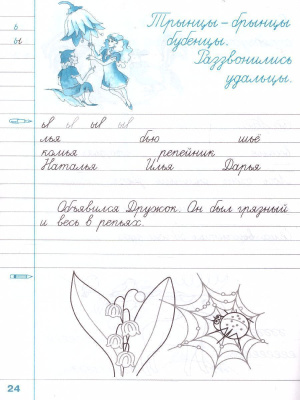 ь
ы
Трынцы-брынцы
бубенцы.
Раззвонились
удальцы.
ья бью шьё
колья репейник
Наталья Илья Дарья
Объявился Дружок. Он был грязный
и весь в репьях.
24